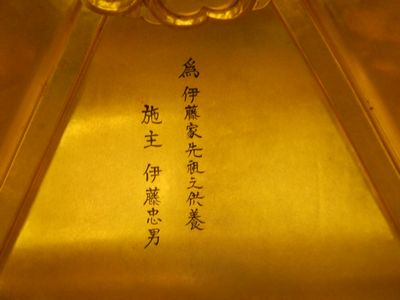 為伊藤家先祖之供養
施主 伊藤忠男